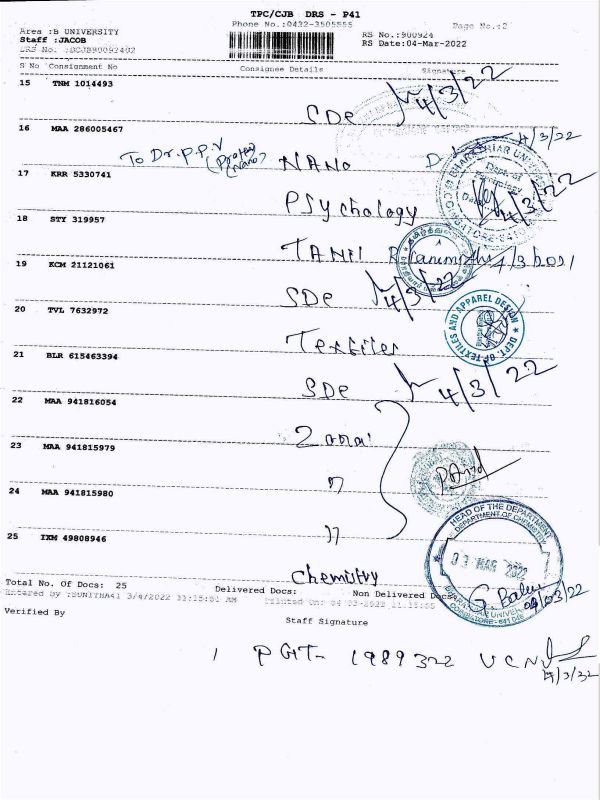 TPC/CJB DRS - P41
Phone No.:0422-3505555
Page No.:2
Area :B UNIVERSITY
RS No.:900924
Staff :JACOB
RS Date:04-Mar-2022
S No Consignment No Consignee Details Signature
15 TNM 1014493
SDE 4/3/22
16 MAA 286005467
To Dr.P.P.V NANO 4/3/22
17 KRR 5330741
Psychology 4/3/22
18 STY 319957
TAMIL 4/3/2021
19 KCM 21121061
SDE 4/3/22
20 TVL 7632972
Textiles
DEPT. OF TEXTILES AND APPAREL DESIGN
21 BLR 615463394
SDE 4/3/22
22 MAA 941816054
23 MAA 941815979
"
24 MAA 941815980
"
25 IXM 49808946
Chemistry
HEAD OF THE DEPARTMENT
DEPARTMENT OF CHEMISTRY
03 MAR 2022
COIMBATORE - 641 046
Total No. Of Docs: 25 Delivered Docs: Non Delivered Docs:
Entered by :SUNITHA41 3/4/2022 11:15:01 AM Printed On: 04-03-2022 11:15:05
Verified By
Staff Signature
1 PGT- 1989322 UCN
4/3/22